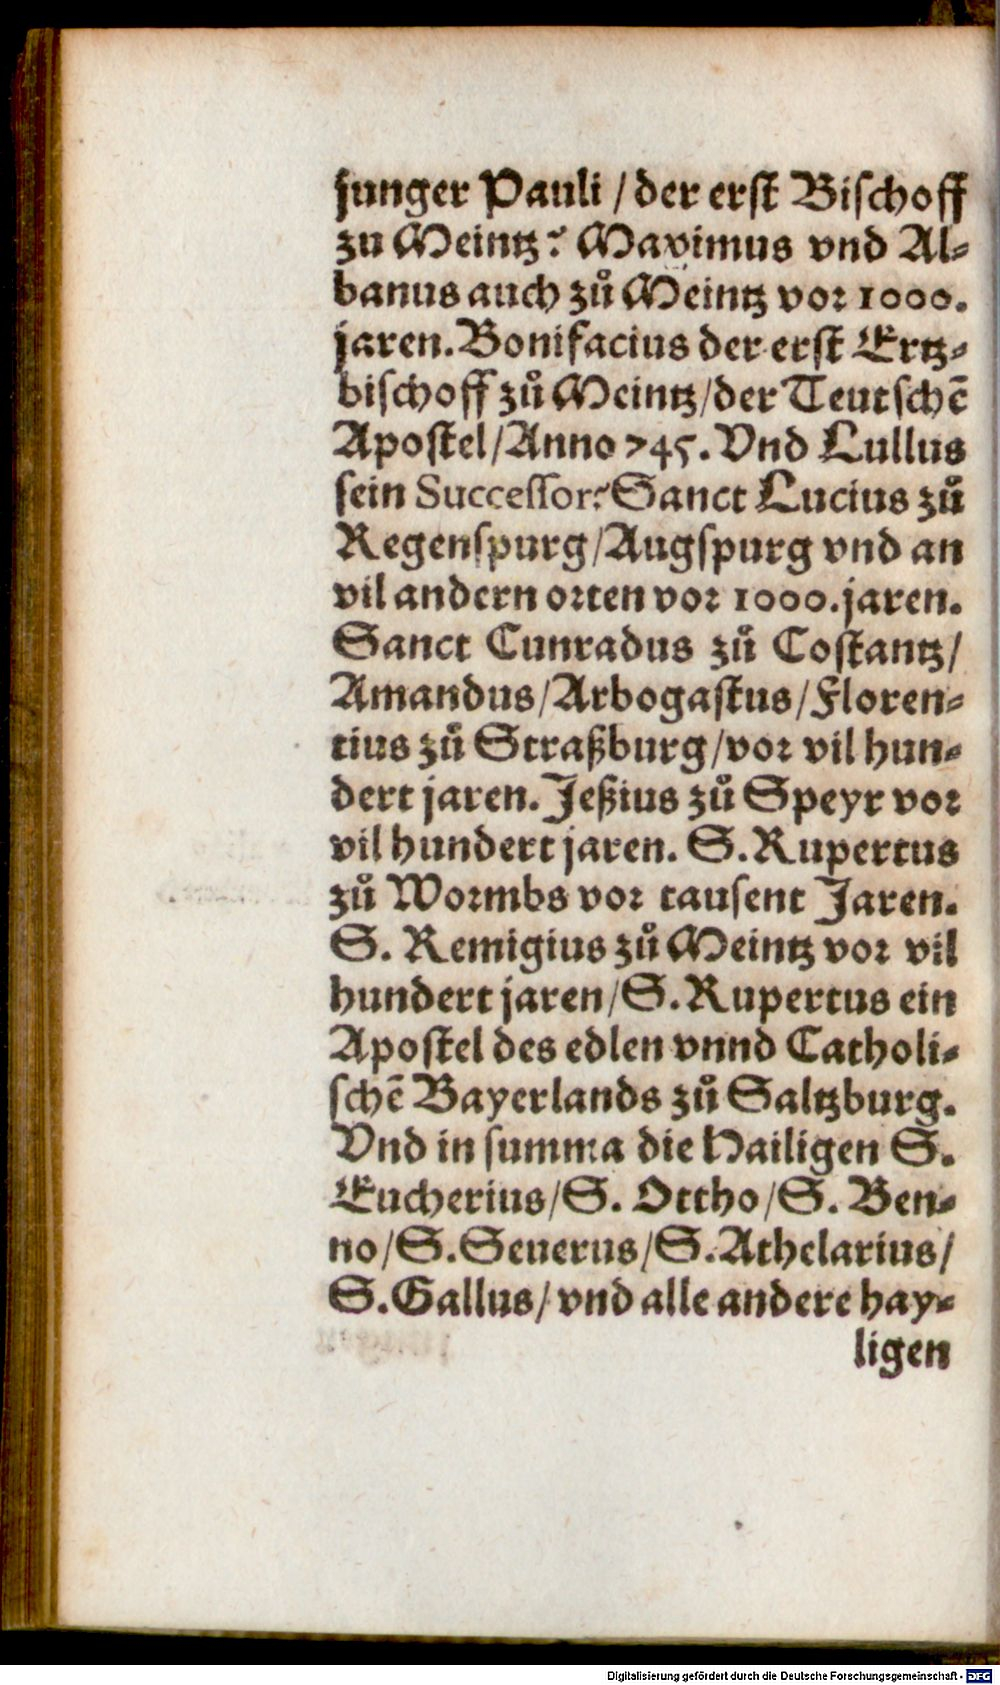 junger Pauli / der erst Bischoff
zu Meintz? Maximus vnd Al-
banus auch zů Meintz vor 1000.
jaren. Bonifacius der erst Ertz-
bischoff zů Meintz/der Teutschē
Apostel/Anno 745. Vnd Lullus
sein Successor? Sanct Lucius zů
Regenspurg/Augspurg vnd an
vil andern orten vor 1000. jaren.
Sanct Cunradus zů Costantz/
Amandus/Arbogastus/Floren-
tius zů Straßburg/vor vil hun-
dert jaren. Jeßius zů Speyr vor
vil hundert jaren. S. Rupertus
zů Wormbs vor tausent Jaren.
S. Remigius zů Meintz vor vil
hundert jaren/S. Rupertus ein
Apostel des edlen vnnd Catholi-
schē Bayerlands zů Saltzburg.
Vnd in summa die Hailigen S.
Eucherius/S. Ottho/S. Ben-
no/S. Seuerus/S. Athelarius/
S. Gallus/ vnd alle andere hay-
ligen
Digitalisierung gefördert durch die Deutsche Forschungsgemeinschaft - DFG